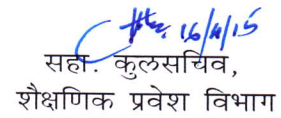 16/4/15
सहा. कुलसचिव,
शैक्षणिक प्रवेश विभाग